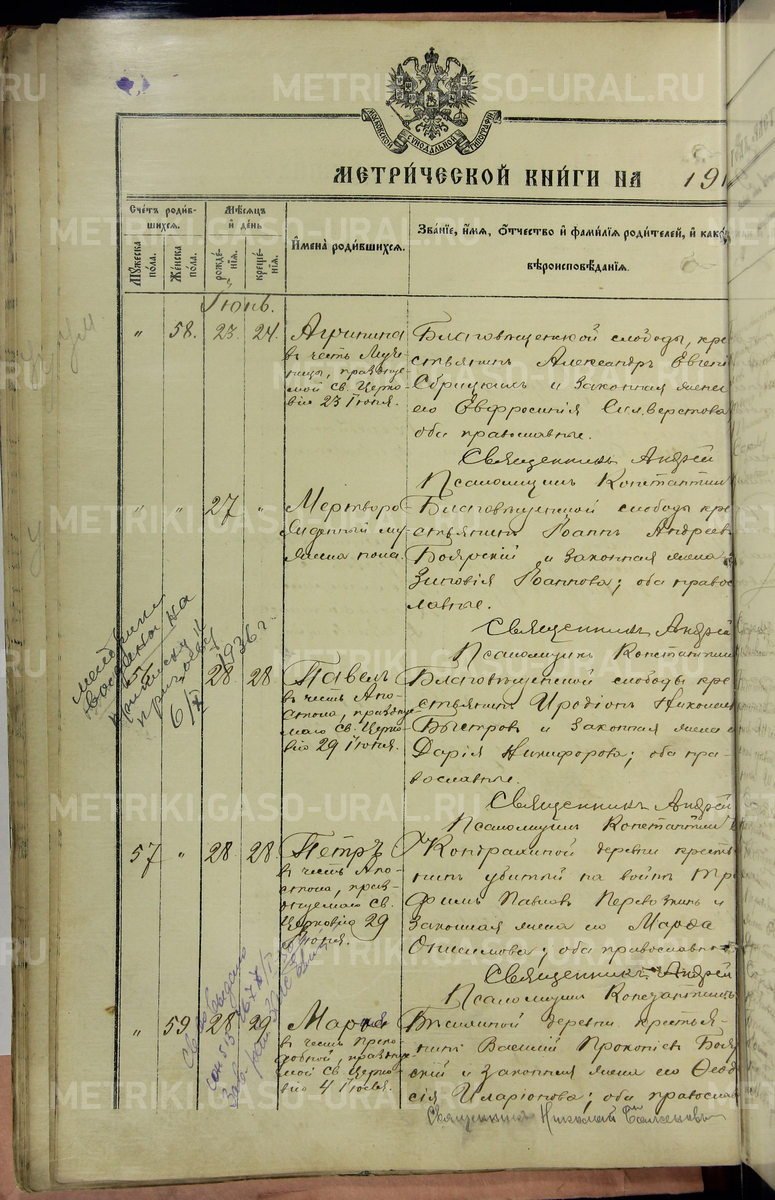 МОСКОВСКОЙ СѴНОДАЛЬНОЙ ТИПОГРАФІИ
МЕТРИ́ЧЕСКОЙ КНИ́ГИ НА 191
Сче́тъ роди́в-
шихся.
Му́жеска по́ла.
Же́нска по́ла.
Мѣ́сяцъ
и де́нь
рожде́-
нія.
креще́-
нія.
Имена̀ роди́вшихся.
Зва́ніе, и́мя, о́тчество и фами́лія роди́телей, и како́
вѣроисповѣ́данія.
Іюнь.
" 58. 23. 24. Агрипина
въ честь Муче-
ницы, празднуе-
мой Св. Церко-
вію 23 Іюня.
Благовѣщенской слободы, кре
стьянинъ Александръ Евгені
и законная жена
его Евфросинія Силверстова
оба православные.
Священникъ Андрей
Псаломщикъ Константин
" " 27 " Мертворо-
жденный му-
жеска пола.
Благовѣщенской слободы кре
стьянинъ Іоаннъ Андреев
Боярскій и законная жена
Зиновія Іоаннова; оба право
славные.
Священникъ Андрей
Псаломщикъ Константин
1936 г.
6/X
28 28 Павелъ
въ честь Апо-
стола, праздну-
емаго Св. Церко-
вію 29 Іюня.
Благовѣщенской слободы кре
стьянинъ Иродіонъ Николае
Быстровъ и законная жена е
Дарія Никифорова; оба пра-
вославные.
Священникъ Андрей
Псаломщикъ Константин
57 " 28 28. Петръ
въ честь Апо-
стола, празд-
нуемаго Св.
Церковію 29
Іюня.
Кондрахиной деревни кресть
нинъ убитый на войнѣ Тро
фимъ Павловъ и
законная жена его Марѳа
Онисимова; оба православн
Священникъ Андрей
Псаломщикъ Константинъ
" 59. 28 29. Марѳа
въ честь Препо-
добной, праздну-
емой Св. Церко-
вію 4 Іюля.
деревни крестья-
нинъ Василій Прокопіевъ Бояр
скій и законная жена его Ѳеодо
сія Иларіонова; оба православ
Священникъ Николай
METRIKI.GASO-URAL.RU
METRIKI.GASO-URAL.RU
METRIKI.GASO-URAL.RU
METRIKI.GASO-URAL.RU
METRIKI.GASO-URAL.RU
METRIKI.GASO-URAL.RU
METRIKI.GASO-URAL.RU
METRIKI.GASO-URAL.RU